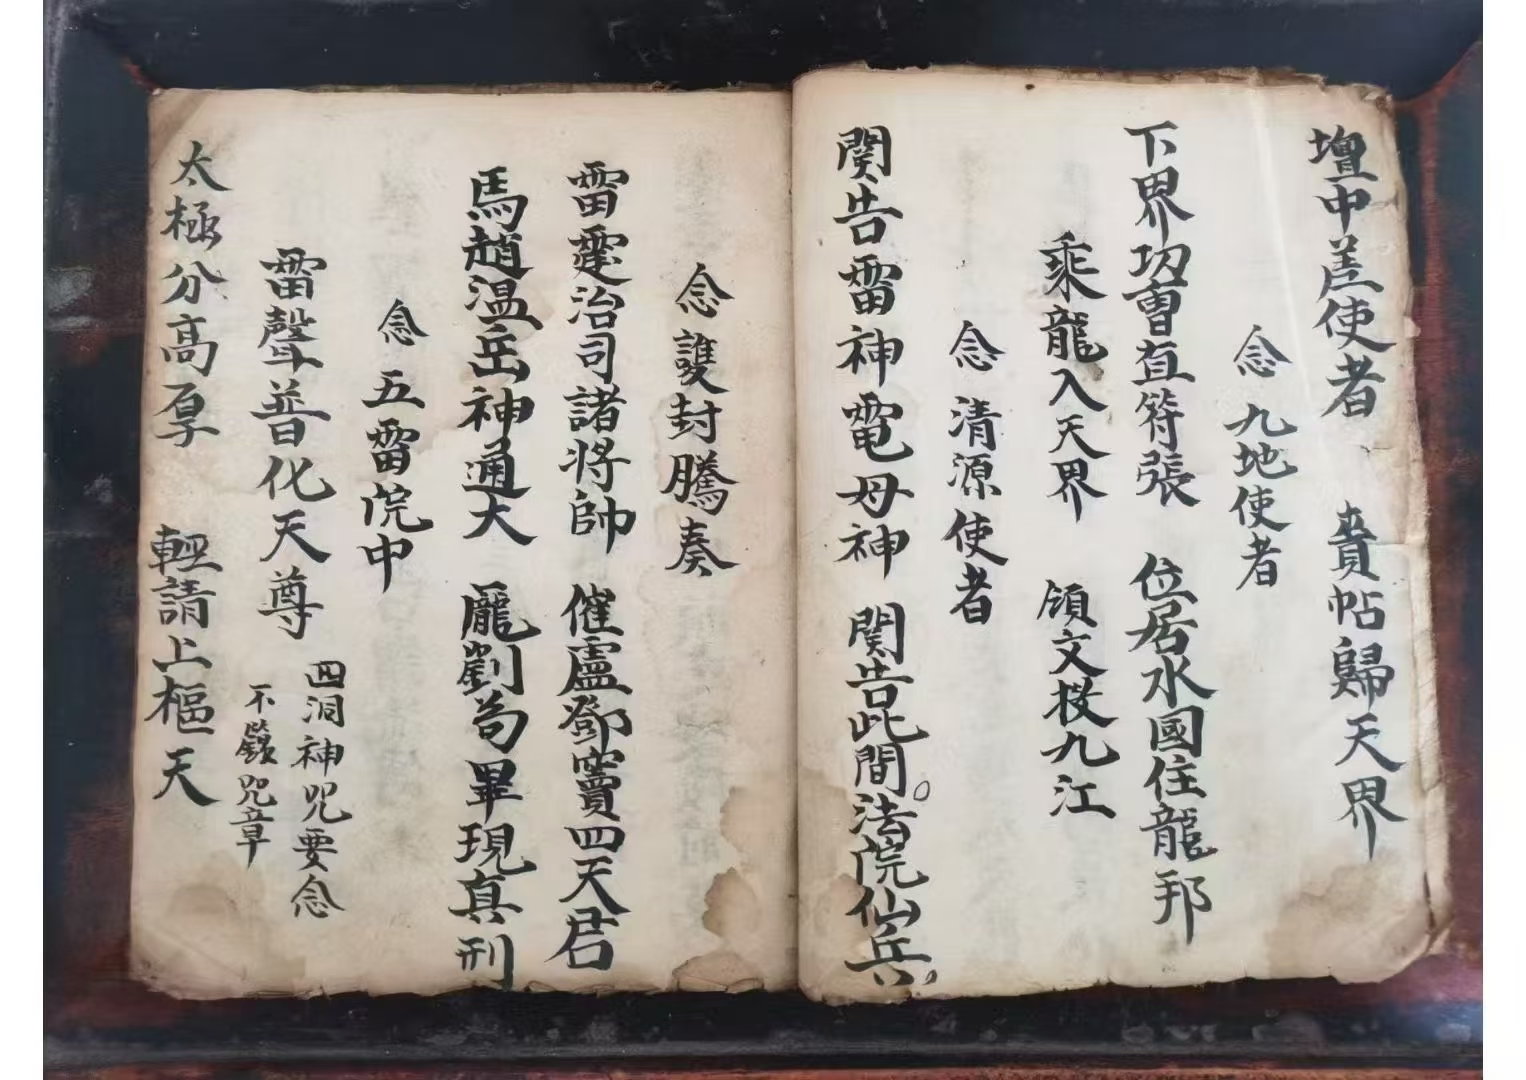 壇中差使者　賫帖歸天界
念　九地使者
下界功曹直符張　位居水國住龍邦
乘龍入天界　領文投九江
念　清源使者
関告雷神電母神　関告此間法院仙兵
念雙封騰奏
雷霆治司諸將帥　催盧鄧竇四天君
馬趙温岳神通大　龐劉茍畢現真刑
念　五雷院中
雷聲普化天尊
四洞神咒要念
不咒章
太極分高厚　輕請上樞天